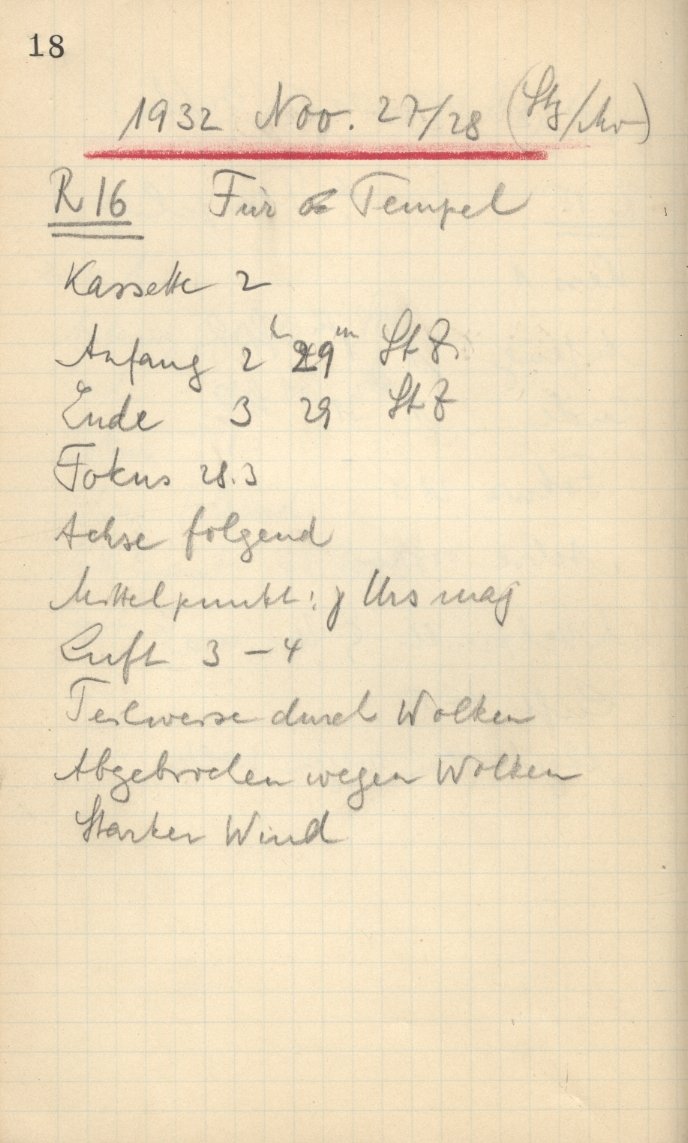 18
1932 Nov. 27/28
R 16 Für Tempel
Kassette 2
Anfang 2h 29m St Z.
Ende 3 29 St Z
Fokus 28.3
Achse folgend
Mittelpunkt: γ Urs maj
Luft 3 – 4
Teilweise durch Wolken
Abgebrochen wegen Wolken
Starker Wind